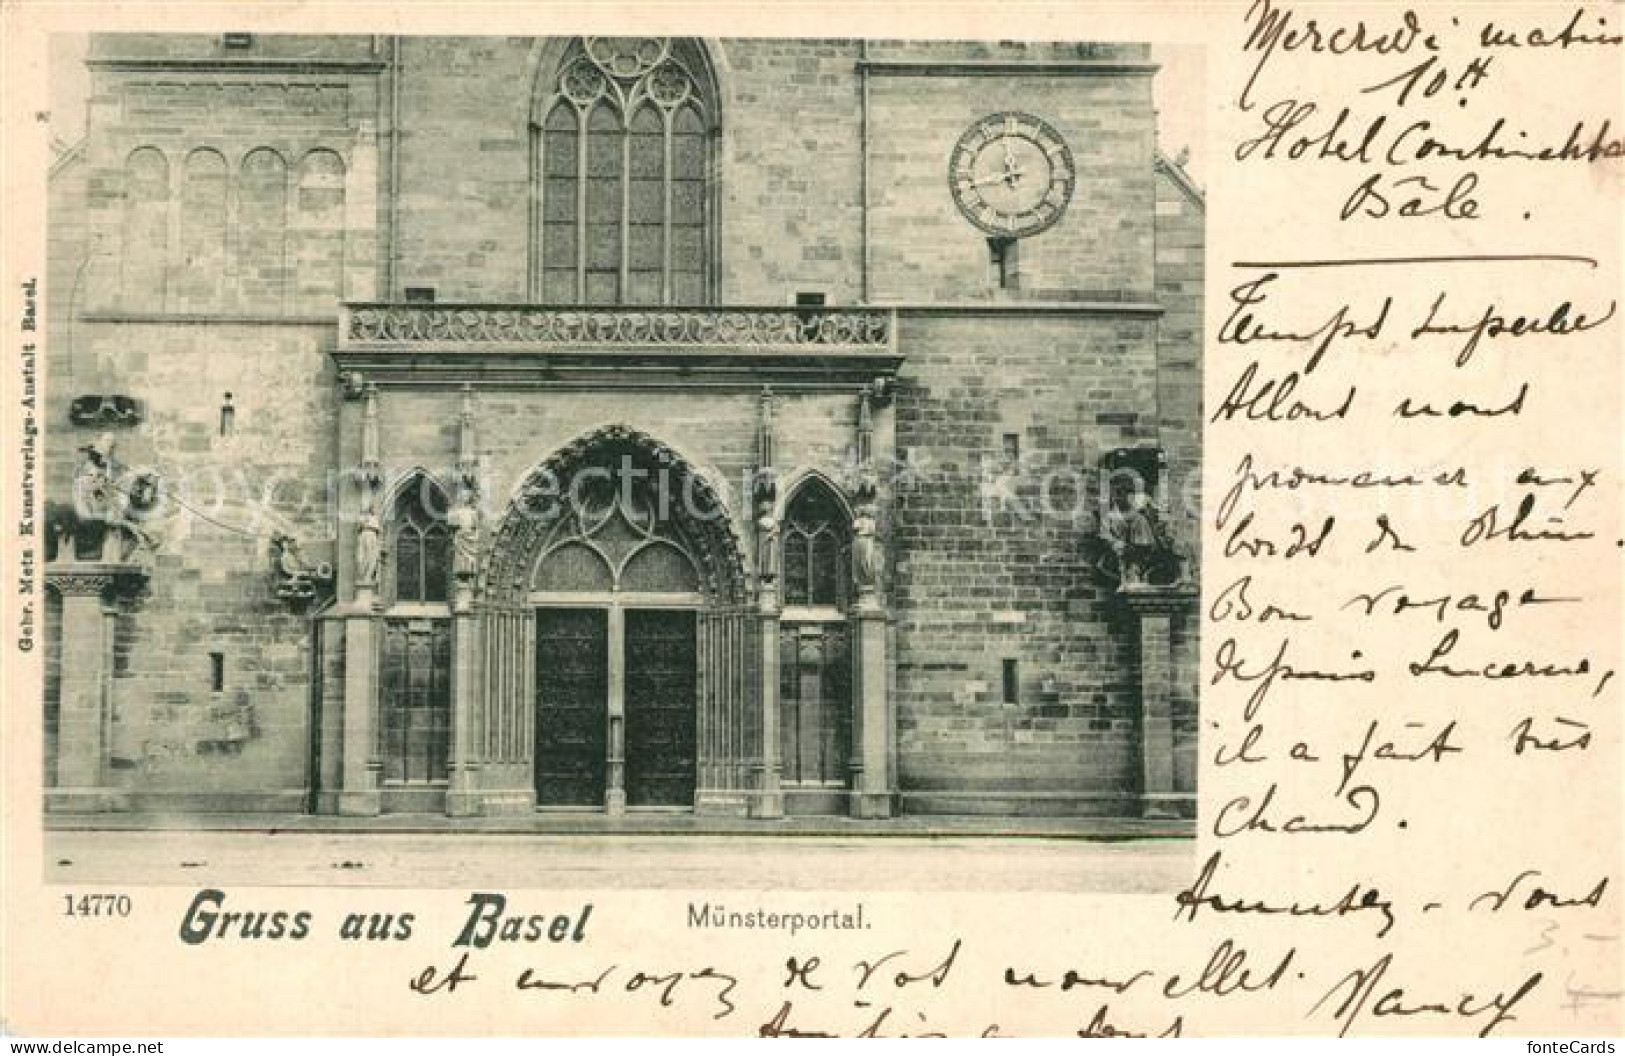 Mercredi matin
10H
Hotel Continental
Bâle.
Temps superbe
Allons nous
promener aux
bords du Rhin.
Bon voyage
depuis Lucerne,
il a fait très
chaud.
Amusez-vous
et envoyez de vos nouvelles.
Nancy
Amitiés a tous
3.-
14770
Gruss aus Basel
Münsterportal.
Gebr. Metz Kunstverlags-Anstalt Basel.
copy protection
https://www.delcampe.net
fonteCards